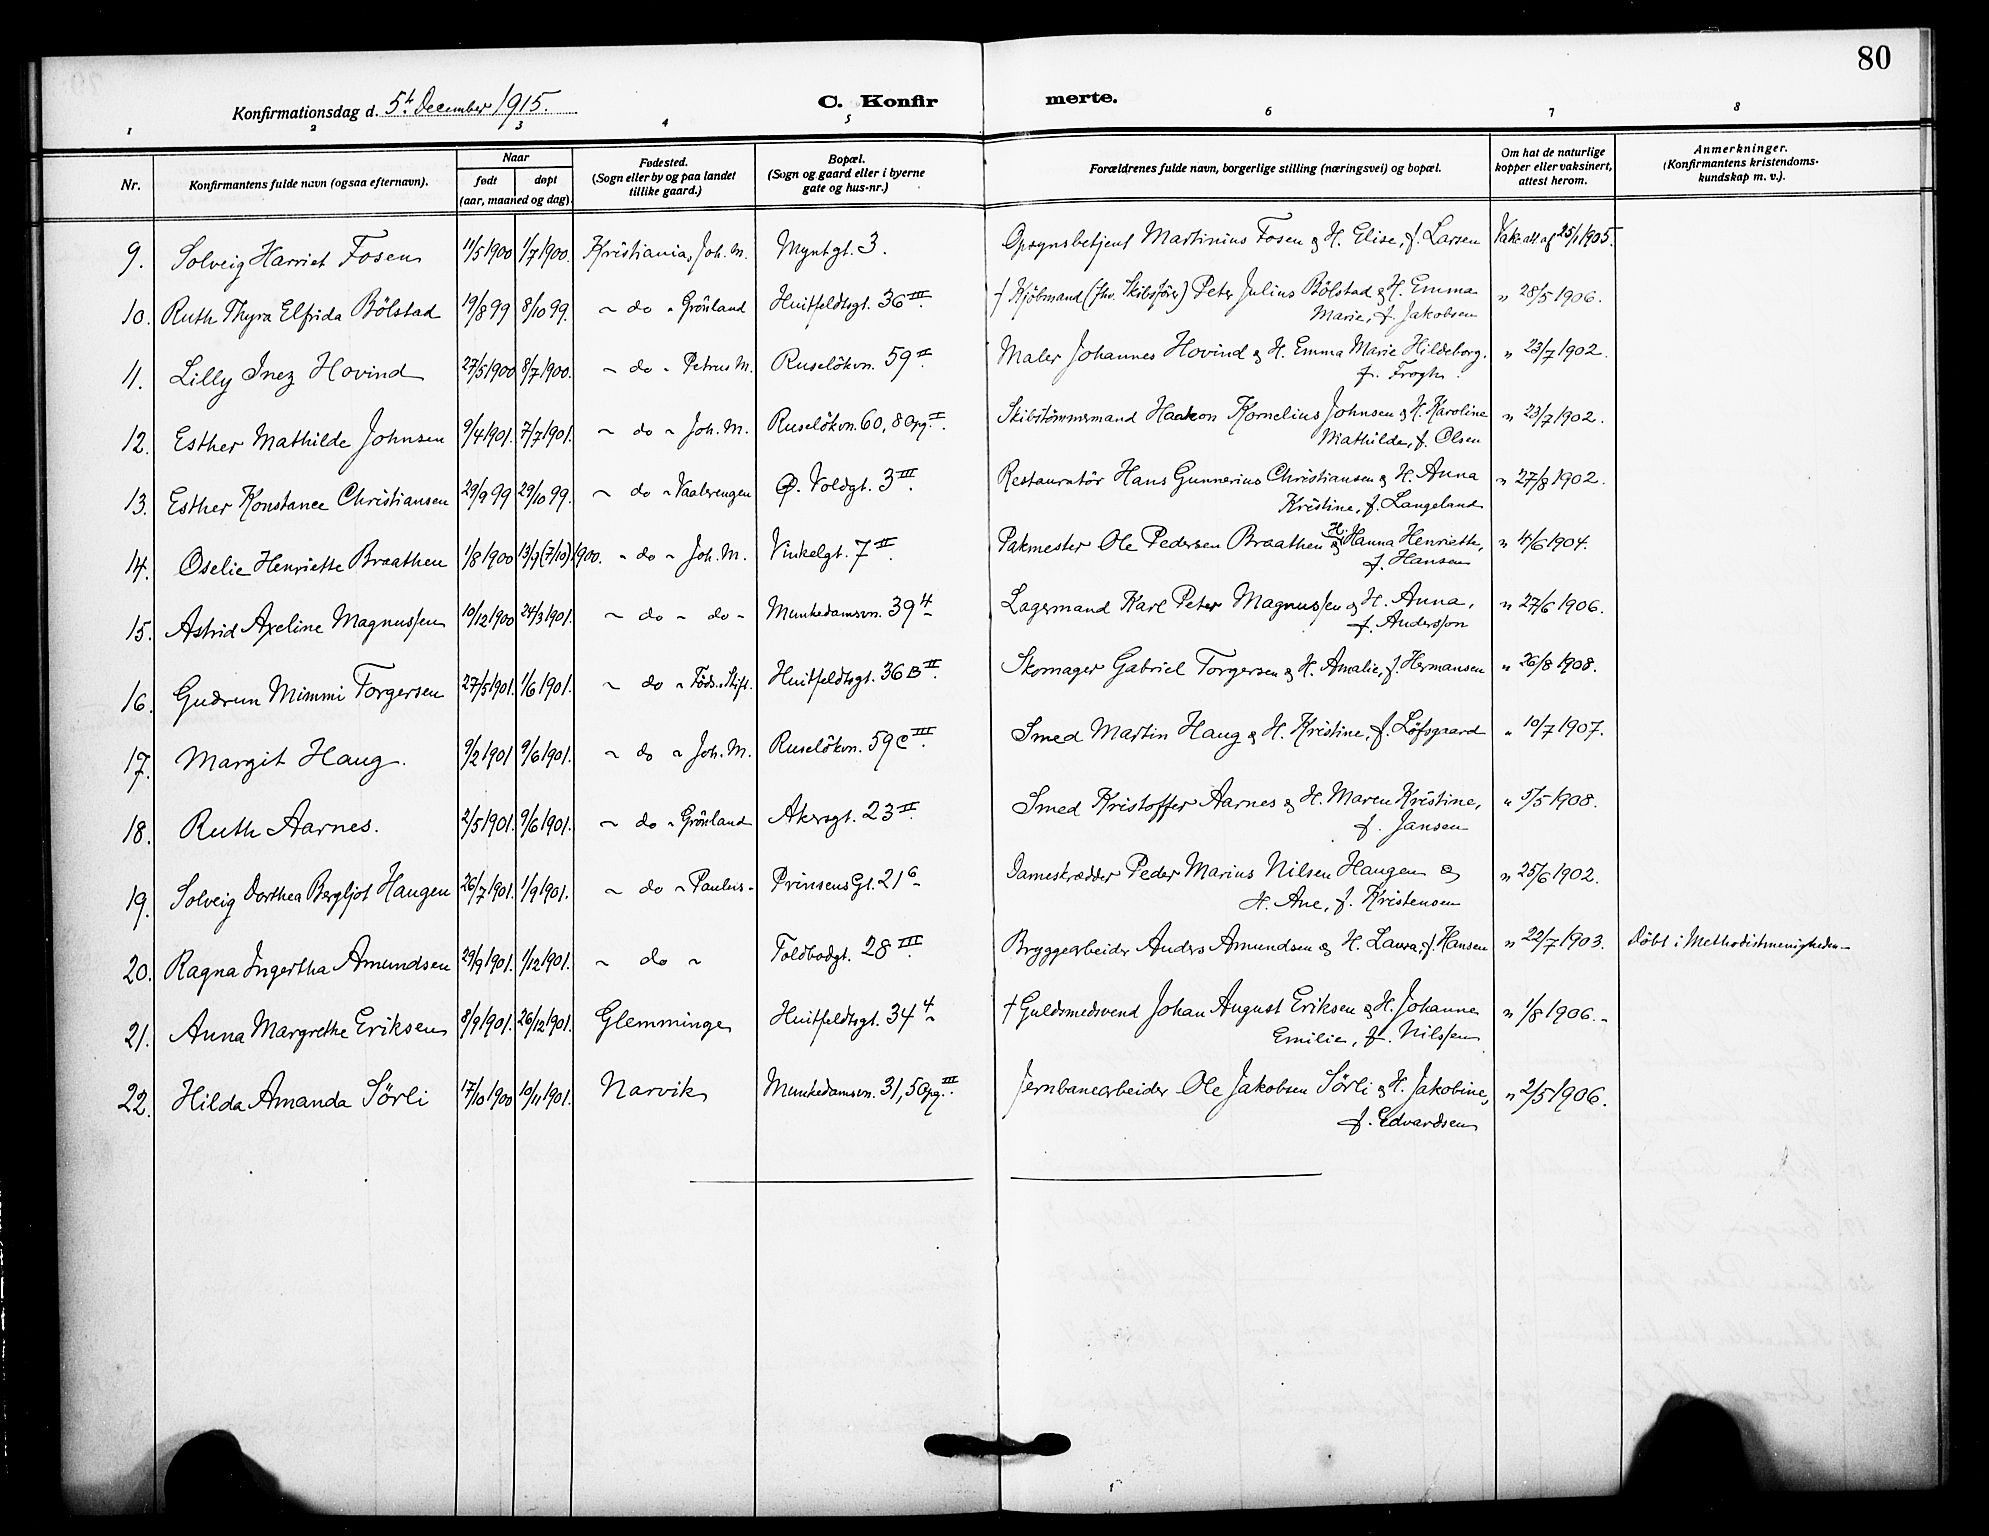 80
Konfirmationsdag d. 5th December 1915. C. Konfir merte.
1 2 3 4 5 6 7 8
Nr. Konfirmantens fulde navn (ogsaa efternavn). Naar født døpt (aar, maaned og dag). Fødested. (Sogn eller by og paa landet tillike gaard.) Bopæl. (Sogn og gaard eller i byerne gate og hus-nr.) Forældrenes fulde navn, borgerlige stilling (næringsvei) og bopæl. Om hat de naturlige kopper eller vaksinert, attest herom. Anmerkninger. (Konfirmantens kristendoms-kundskap m. v.).
9. Solveig Harriet Fosen 11/5 1900 1/7 1900. Kristiania, Joh. M. Myntgt. 3. Opsynsbetjent Martinius Fosen & H. Elise, f. Larsen Vakc. att. af 25/1 1905.
10. Ruth Thyra Elfrida Bölstad 19/8 99 8/10 99. " do " Grönland Huitfeldtsgt. 36 III. † Kjöbmand (fhv. Skibsförer) Peter Julius Bölstad & H. Emma " 28/5 1906.
Marie, f. Jakobsen
11. Lilly Inez Hovind 27/5 1900 8/7 1900. " do " Petrus M. Ruselökvn. 59 II. Maler Johannes Hovind & H. Emma Marie Hildeborg, " 23/7 1902.
f. Frogh.
12. Esther Mathilde Johnsen 9/4 1901. 7/7 1901. " do " Joh. M. Ruselökvn. 60, 8 Opg. II. Skibstömmermand Haakon Kornelius Johnsen & H. Karoline " 23/7 1902.
Mathilde, f. Olsen
13. Esther Konstance Christiansen 29/9 99 29/10 99. " do " Vaalerengen Ø. Voldgt. 3 III. Restauratör Hans Gunnerius Christiansen & H. Anna " 27/8 1902.
Kristine, f. Langeland
14. Oselie Henriette Braathen 1/8 1900 13/9 (7/10) 1900. " do " Joh. M. Vinkelgt. 7 II. Pakmester Ole Pedersen Braathen & Hj. Hanna Henriette, " 4/6 1904.
f. Hansen
15. Astrid Axeline Magnussen 10/12 1900 24/3 1901. " do " do " Munkedamsvn. 39 4 Lagermand Karl Peter Magnussen & H. Anna, " 27/6 1906.
f. Andersson
16. Gudrun Mimmi Torgersen 27/5 1901. 1/6 1901. " do " Föds. Stift. Huitfeldtsgt. 36 B II. Skomager Gabriel Torgersen & H. Amalie, f. Hermansen " 26/8 1908.
17. Margit Haug. 9/2 1901 9/6 1901. " do " Joh. M. Ruselökvn. 59 C III. Smed Martin Haug & H. Kristine, f. Löfsgaard " 10/7 1907.
18. Ruth Aarnes. 2/5 1901. 9/6 1901. " do " Grönland Akersgt. 23 II. Smed Kristoffer Aarnes & H. Maren Kristine, " 5/5 1908.
f. Jansen
19. Solveig Dorthea Bergljot Haugen 26/7 1901. 1/9 1901. " do " Paulus " Prinsens Gt. 21 6 Dameskrædder Peder Marius Nilsen Haugen & " 25/6 1902.
H. Ane, f. Kristensen
20. Ragna Ingertha Amundsen 29/9 1901. 1/12 1901. " do " Toldbodgt. 28 III. Bryggearbeider Anders Amundsen & H. Laura, f. Hansen " 22/7 1903. Döbt i Methodistmenigheden
21. Anna Margrethe Eriksen 8/9 1901. 26/12 1901. Glemminge Huitfeldtsgt. 34 4 † Guldsmedsvend Johan August Eriksen & H. Johanne " 1/8 1906.
Emilie, f. Nilssen
22. Hilda Amanda Sörli 17/10 1900 10/11 1901. Narvik Munkedamsvn. 31, 5 Opg. III. Jernbanearbeider Ole Jakobsen Sörli & H. Jakobine, " 2/5 1906.
f. Edvardsen